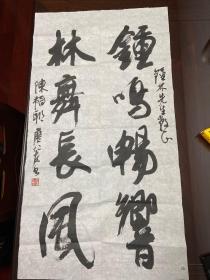 鍾鳴暢響
林舞長風
鍾林先生
陳福郎